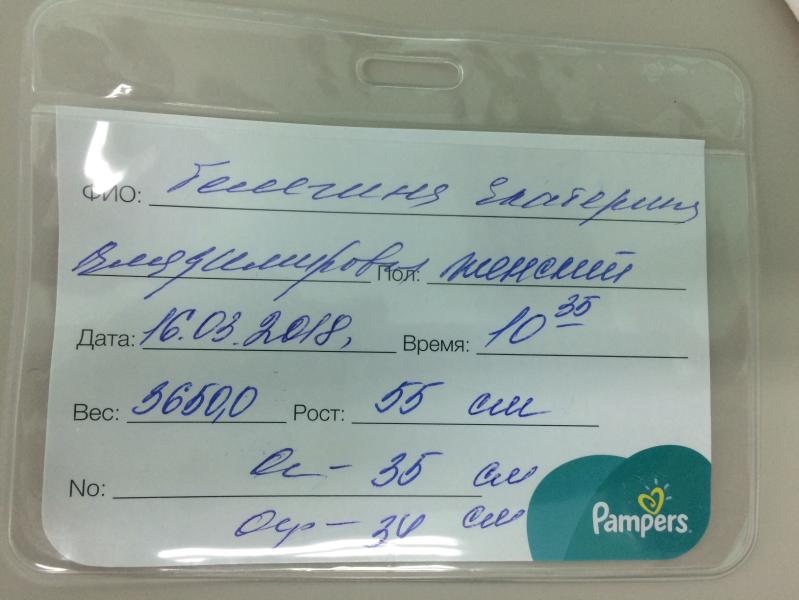 ФИО: Телегина Екатерина
Владимировна Пол: женский
Дата: 16.03.2018, Время: 10 35
Вес: 3650,0 Рост: 55 см
Ог – 35 см
No:
Огр – 34 см
Pampers